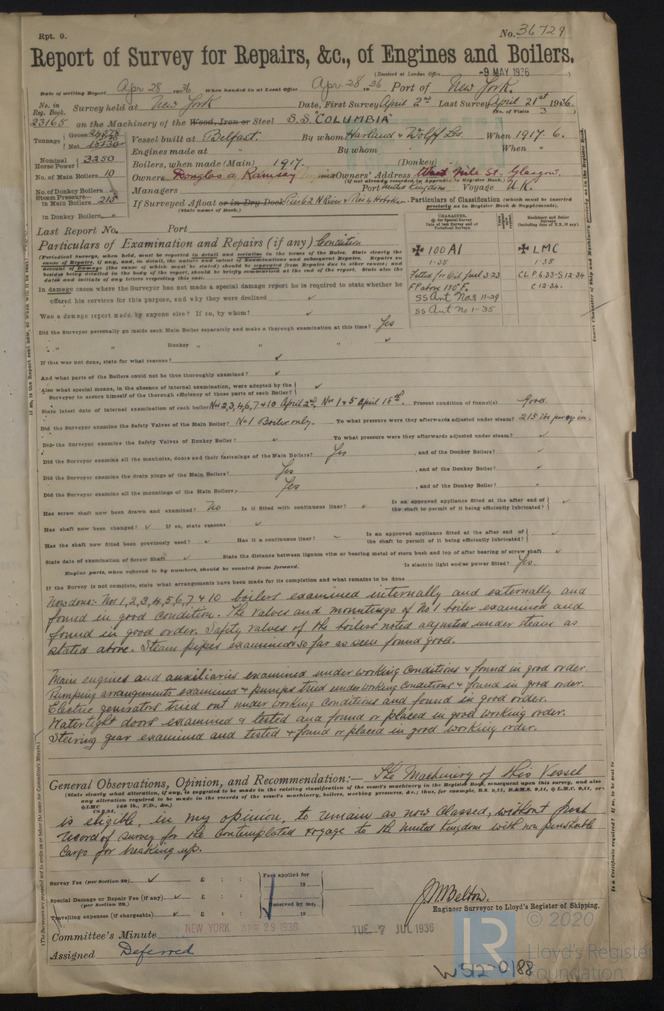 Rpt. 9.
No. 36729
Report of Survey for Repairs, &c., of Engines and Boilers.
(Received at London Office -9 MAY 1936
Date of writing Report Apr 28 1936 When handed in at Local Office Apr 28 1936 Port of New York.
No. in Reg. Book. Survey held at New York Date, First Survey April 2nd Last Survey April 21st 1936.
(No. of Visits 3
23165 on the Machinery of the Wood, Iron or Steel S.S. "COLUMBIA"
Tonnage Gross Net
Vessel built at Belfast. By whom Harland & Wolff Ld. When 1917. 6.
Engines made at By whom When
Nominal Horse Power 3250
Boilers, when made (Main) 1917. (Donkey)
No. of Main Boilers 10
Owners Douglas & Ramsay Owners' Address West Nile St. Glasgow.
(if not already recorded in Appendix to Register Book.)
No. of Donkey Boilers
Managers Port United Kingdom Voyage U.K.
Steam Pressure in Main Boilers 215
If Surveyed Afloat or in Dry Dock Pier 62 N. River & Pier 16 Hoboken
(State name of Dock.)
in Donkey Boilers
Particulars of Classification (which must be inserted precisely as in Register Book & Supplements).
Last Report No. Port
Particulars of Examination and Repairs (if any) Condition
✠ 100 A1
1.35
Fitted for Oil fuel 3.23
FP above 150°F.
SS Ant No 3 11-29
SS Ant No 1-35
✠ LMC
1.35
CL P.6.33-S 12.34
C 12.34.
In damage cases where the Surveyor has not made a special damage report he is required to state whether he
offered his services for this purpose, and why they were declined ✓
Was a damage report made by anyone else? If so, by whom? ✓
Did the Surveyor personally go inside each Main Boiler separately and make a thorough examination at this time? Yes
" " Donkey " " " ✓
If this was not done, state for what reasons? ✓
And what parts of the Boilers could not be thus thoroughly examined? ✓
Also what special means, in the absence of internal examination, were adopted by the Surveyor to assure himself of the thorough efficiency of those parts of each Boiler? ✓
State latest date of internal examination of each boiler Nos 2,3,4,6,7 & 10 April 2nd, Nos 1 & 5 April 15th. Present condition of funnel(s) Good.
Did the Surveyor examine the Safety Valves of the Main Boiler? No 1 Boiler only. To what pressure were they afterwards adjusted under steam? 215 lbs per sq in.
Did the Surveyor examine the Safety Valves of Donkey Boiler? To what pressure were they afterwards adjusted under steam? ✓
Did the Surveyor examine all the manholes, doors and their fastenings of the Main Boilers? Yes, and of the Donkey Boiler? ✓
Did the Surveyor examine the drain plugs of the Main Boilers? Yes, and of the Donkey Boiler? ✓
Did the Surveyor examine all the mountings of the Main Boilers, Yes, and of the Donkey Boiler? ✓
Has screw shaft now been drawn and examined? No Is it fitted with continuous liner? ✓ Is an approved appliance fitted at the after end of the shaft to permit of it being efficiently lubricated? ✓
Has shaft now been changed? ✓ If so, state reasons ✓
Has the shaft now fitted been previously used? ✓ Has it a continuous liner? ~ Is an approved appliance fitted at the after end of the shaft to permit of it being efficiently lubricated? ✓
State date of examination of Screw Shaft ✓ State the distance between lignum vitæ or bearing metal of stern bush and top of after bearing of screw shaft ✓
Engine parts, when referred to by numbers, should be counted from forward. Is electric light and/or power fitted? Yes.
If the Survey is not complete, state what arrangements have been made for its completion and what remains to be done
Now done: Nos 1, 2, 3, 4, 5, 6, 7 & 10 boilers examined internally and externally and
found in good condition. The valves and mountings of No 1 boiler examined and
found in good order. Safety valves of the boilers noted adjusted under steam as
stated above. Steam pipes examined so far as seen found good.
Main engines and auxiliaries examined under working conditions & found in good order.
Pumping arrangements examined & pumps tried under working conditions & found in good order.
Electric generators tried out under working conditions and found in good order.
Watertight doors examined & tested and found or placed in good working order.
Steering gear examined and tested & found or placed in good working order.
General Observations, Opinion, and Recommendation:— The Machinery of this Vessel
is eligible, in my opinion, to remain as now Classed, without fresh
record of survey for the contemplated voyage to the United Kingdom with non perishable
cargo for breaking up.
Survey Fee (per Section 29) ✓ £ : :
Fees applied for 19
Special Damage or Repair Fee (if any) (per Section 29.) ✓ £ : :
Received by me, 19
Travelling expenses (if chargeable) ✓ £ : :
J M Belton.
Engineer Surveyor to Lloyd's Register of Shipping.
Committee's Minute NEW YORK APR 29 1936 TUE. 7 JUL 1936
Assigned Deferred
© 2020
LR
Lloyd's Register
Foundation
W512-0188